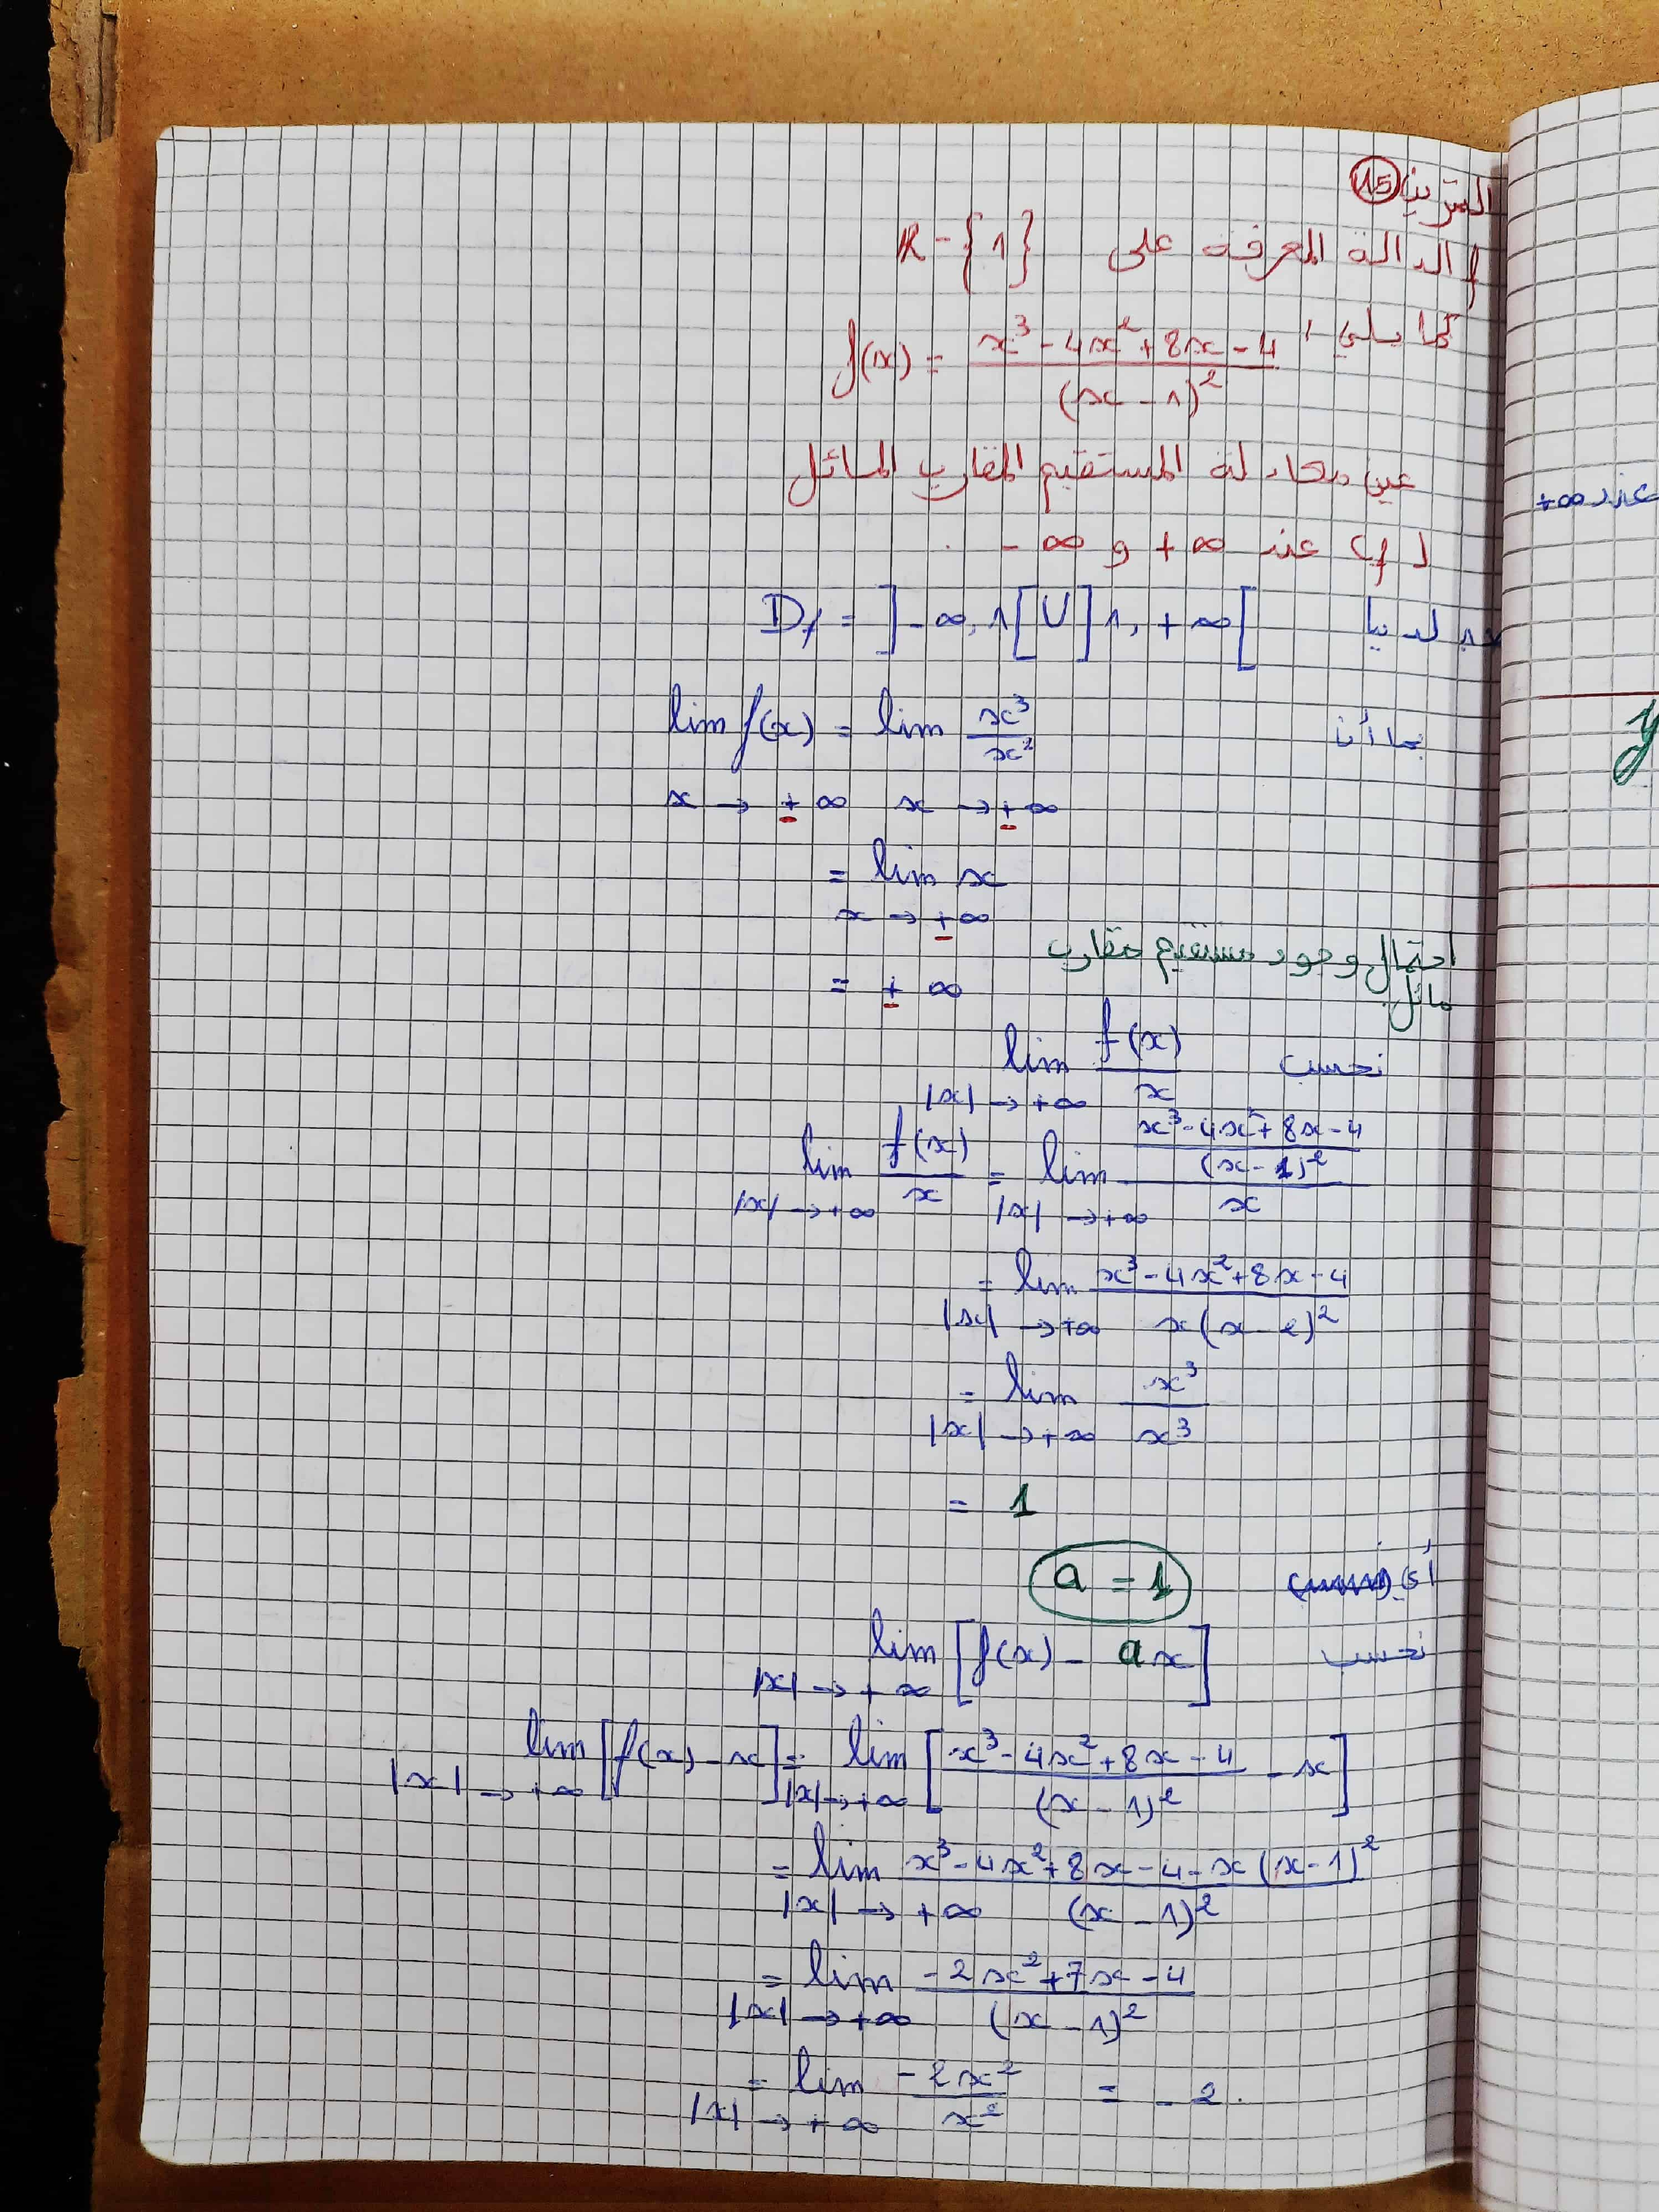 التمرين 15
f الدالة المعرفة على R - {1}
كما يلي : f(x) = (x³ - 4x² + 8x - 4) / (x - 1)²
عين معادلة المستقيم المقارب المائل
لـ Cf عند +∞ و -∞ .
لدينا Df = ]-∞, 1[ U ]1, +∞[
بما أن lim f(x) = lim x³/x²
x → ±∞ x → ±∞
= lim x
x → ±∞
احتمال وجود مستقيم مقارب
مائل
= ±∞
نحسب lim f(x)/x
|x| → +∞
lim f(x)/x = lim ((x³ - 4x² + 8x - 4) / (x - 1)²) / x
|x| → +∞ |x| → +∞
= lim (x³ - 4x² + 8x - 4) / x(x - 2)²
|x| → +∞
= lim x³/x³
|x| → +∞
= 1
أي a = 1
نحسب lim [f(x) - ax]
|x| → +∞
lim [f(x) - x] = lim [(x³ - 4x² + 8x - 4) / (x - 1)² - x]
|x| → +∞ |x| → +∞
= lim (x³ - 4x² + 8x - 4 - x(x - 1)²) / (x - 1)²
|x| → +∞
= lim (-2x² + 7x - 4) / (x - 1)²
|x| → +∞
= lim -2x²/x² = -2.
|x| → +∞
عند +∞
y